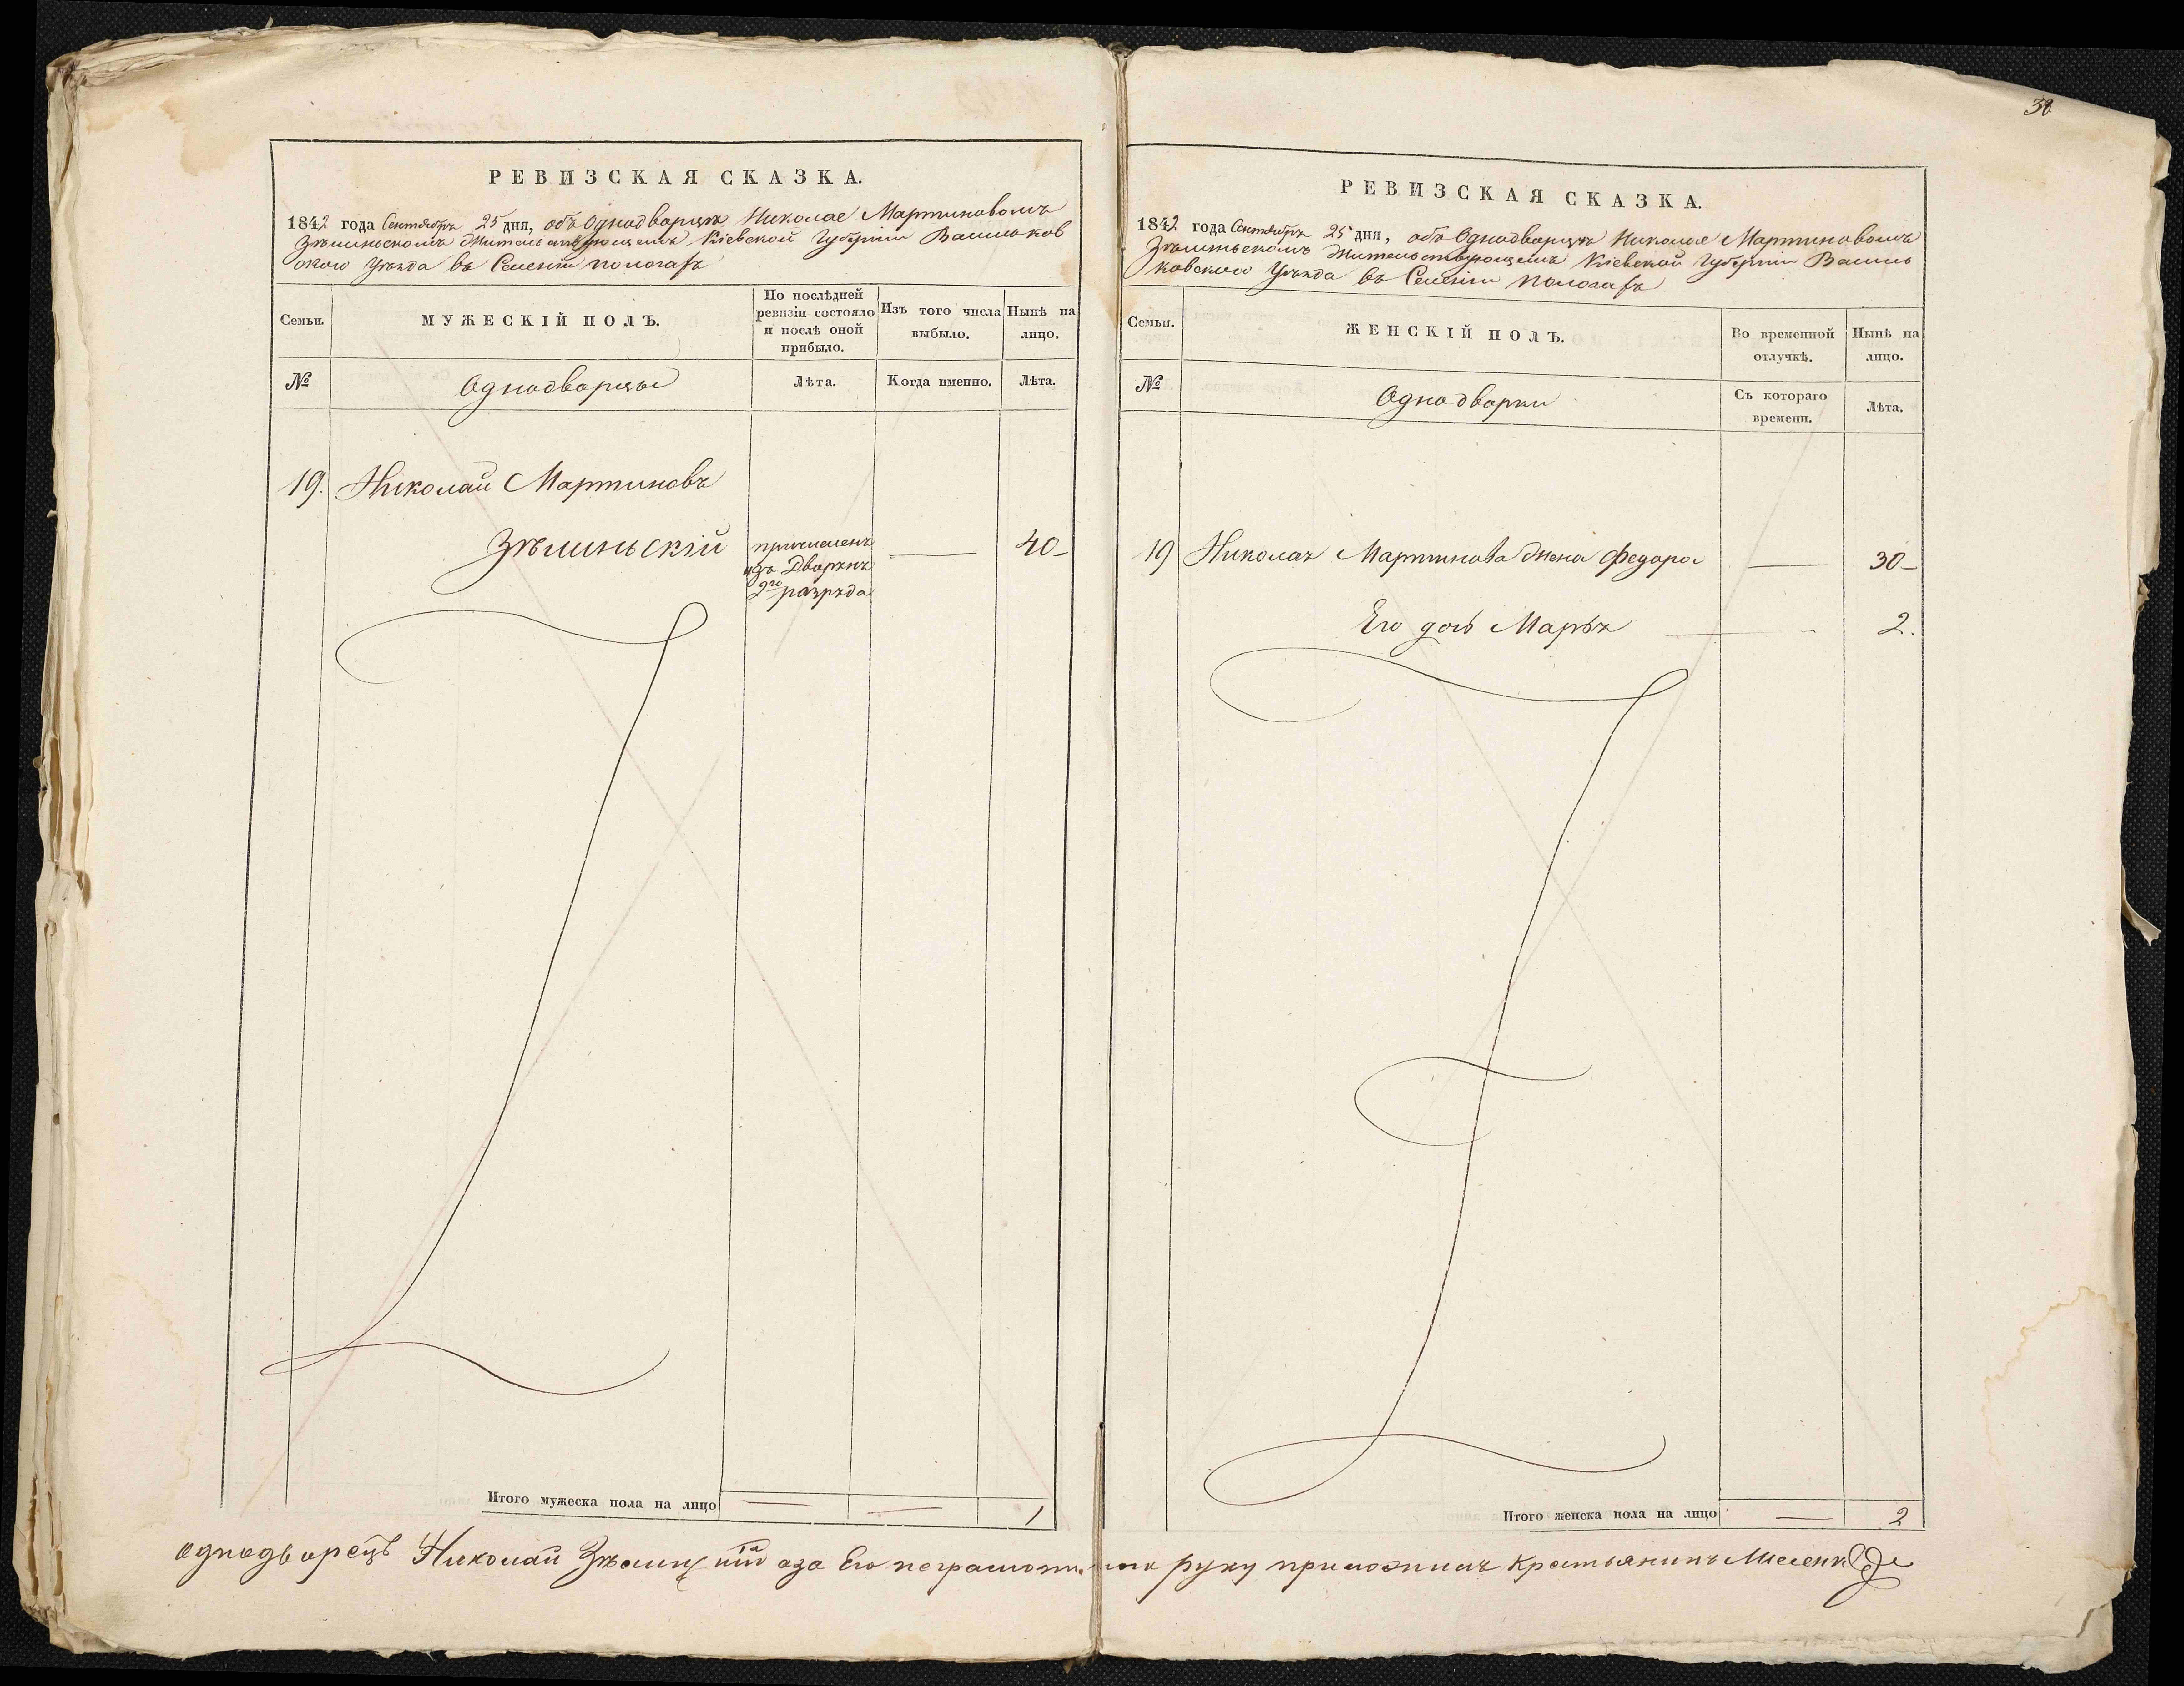 38
РЕВИЗСКАЯ СКАЗКА.
1842 года Сентября 25 дня, объ Однодворцѣ Николае Мартиновомъ
Зѣлиньскомъ Жительствующемъ Кіевской Губерніи Васильков
ского Уѣзда въ Селеніи Пологахъ
Семьи.
МУЖЕСКІЙ ПОЛЪ.
По послѣдней
ревизіи состояло
и послѣ оной
прибыло.
Изъ того числа
выбыло.
Нынѣ на
лицо.
№
Однодворцы
Лѣта.
Когда именно.
Лѣта.
19. Николай Мартиновъ
Зѣлиньскій
причисленъ
изъ Дворянъ
2го разряда
40
Итого мужеска пола на лицо
1
РЕВИЗСКАЯ СКАЗКА.
1842 года Сентября 25 дня, объ Однодворцѣ Николае Мартиновомъ
Зѣлиньскомъ Жительствующемъ Кіевской Губерніи Василь
ковского Уѣзда въ Селеніи Пологахъ
Семьи.
ЖЕНСКІЙ ПОЛЪ.
Во временной
отлучкѣ.
Нынѣ на
лицо.
№
Однодворки
Съ котораго
времени.
Лѣта.
19 Николая Мартинова жена Федора 30
Его дочь Марья 2.
Итого женска пола на лицо
2
однодворецъ Николай руку приложилъ Крестьянинъ